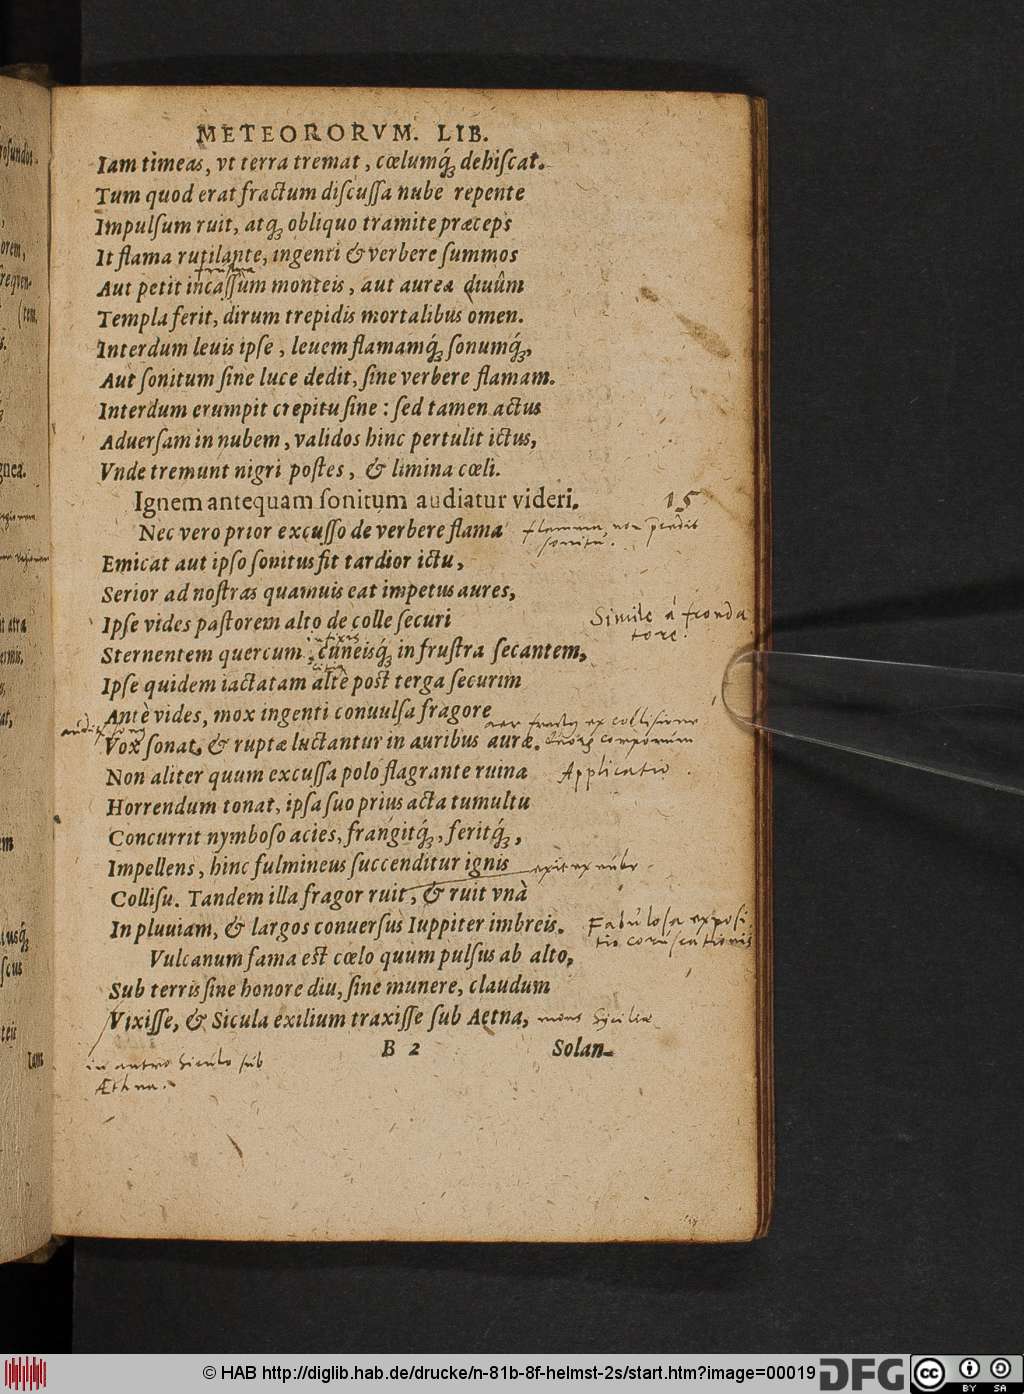 METEORORVM. LIB.
Iam timeas, vt terra tremat, cœlumq́ꝫ dehiſcat.
Tum quod erat fractum diſcuſſa nube repente
Impulſum ruit, atqꝫ obliquo tramite præceps
It flama rutilante, ingenti & verbere ſummos
fruſtra
Aut petit incaſſum monteis, aut aurea diuûm
Templa ferit, dirum trepidis mortalibus omen.
Interdum leuis ipſe, leuem flamamq́ꝫ ſonumq́ꝫ,
Aut ſonitum ſine luce dedit, ſine verbere flamam.
Interdum erumpit crepitu ſine: ſed tamen actus
Aduerſam in nubem, validos hinc pertulit ictus,
Vnde tremunt nigri poſtes, & limina cœli.
Ignem antequam ſonitum audiatur videri. 15
Nec vero prior excuſſo de verbere flama flamma non
ſonitu.
Emicat aut ipſo ſonitus fit tardior ictu,
Serior ad noſtras quamuis eat impetus aures,
Ipſe vides paſtorem alto de colle ſecuri Simile à fronda
tore.
Sternentem quercum, cuneisq́ꝫ in fruſtra ſecantem,
Ipſe quidem iactatam altè poſt terga ſecurim
Antè vides, mox ingenti conuulſa fragore
aer fractus ex collisione
Vox ſonat, & ruptæ luctantur in auribus auræ. duorum corporum
Non aliter quum excuſſa polo flagrante ruina Applicatio.
Horrendum tonat, ipſa ſuo prius acta tumultu
Concurrit nymboſo acies, frangitq́ꝫ, feritq́ꝫ,
Impellens, hinc fulmineus ſuccenditur ignis exit ex nube.
Colliſu. Tandem illa fragor ruit, & ruit vnà
In pluuiam, & largos conuerſus Iuppiter imbreis. Fabuloſa expoſi
tio coruſcationis
Vulcanum fama eſt cœlo quum pulſus ab alto,
Sub terris ſine honore diu, ſine munere, claudum
Vixiſſe, & Sicula exilium traxiſſe ſub Aetna, mons Syciliæ
B 2 Solan-
in antro Siculo ſub
Æthna.
© HAB http://diglib.hab.de/drucke/n-81b-8f-helmst-2s/start.htm?image=00019 DFG cc BY SA